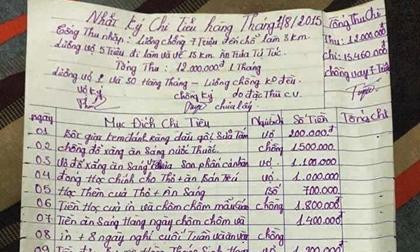 Nhật ký Chi Tiêu hàng Tháng 1/8/2015
Công Thu nhập: Lương chồng 7 Triệu đến chỗ làm 8km
lương vợ 5 Triệu đi làm và về 15 km ăn Trưa Tự Túc
Tổng Thu: 12.000.000đ 1 Tháng
lương vợ và Hàng Tháng - Lương chồng ko đều
vợ ký
chồng ký
do đặc Thù c.v.
chưa lấy
Tổng Thu Chi
Thu: 12.000.000
chi: 15.460.000
chồng vay
ngày
Mục Đích Chi Tiêu
Người
Số Tiền
Tổng chi
01
200.000đ
02
chồng đổ xăng ăn Sáng nước Thuốc
chồng
1500.000
03
Vợ đổ xăng ăn Sáng
Son phấn cá nhân
vợ
1.100.000
04
đóng Học chính cho Thỏ + ăn Bán Trú
vợ
1.000.000
05
Học Thêm của Thỏ + Ăn Sáng
Bố
700.000
06
Tiền Học của in và chôm chôm
chồng
1.800.000đ
07
Tiền ăn Sáng Hàng ngày chôm chôm và
1.400.000đ
08
in + 8 ngày nghỉ cuối Tuần
chồng
09
vợ